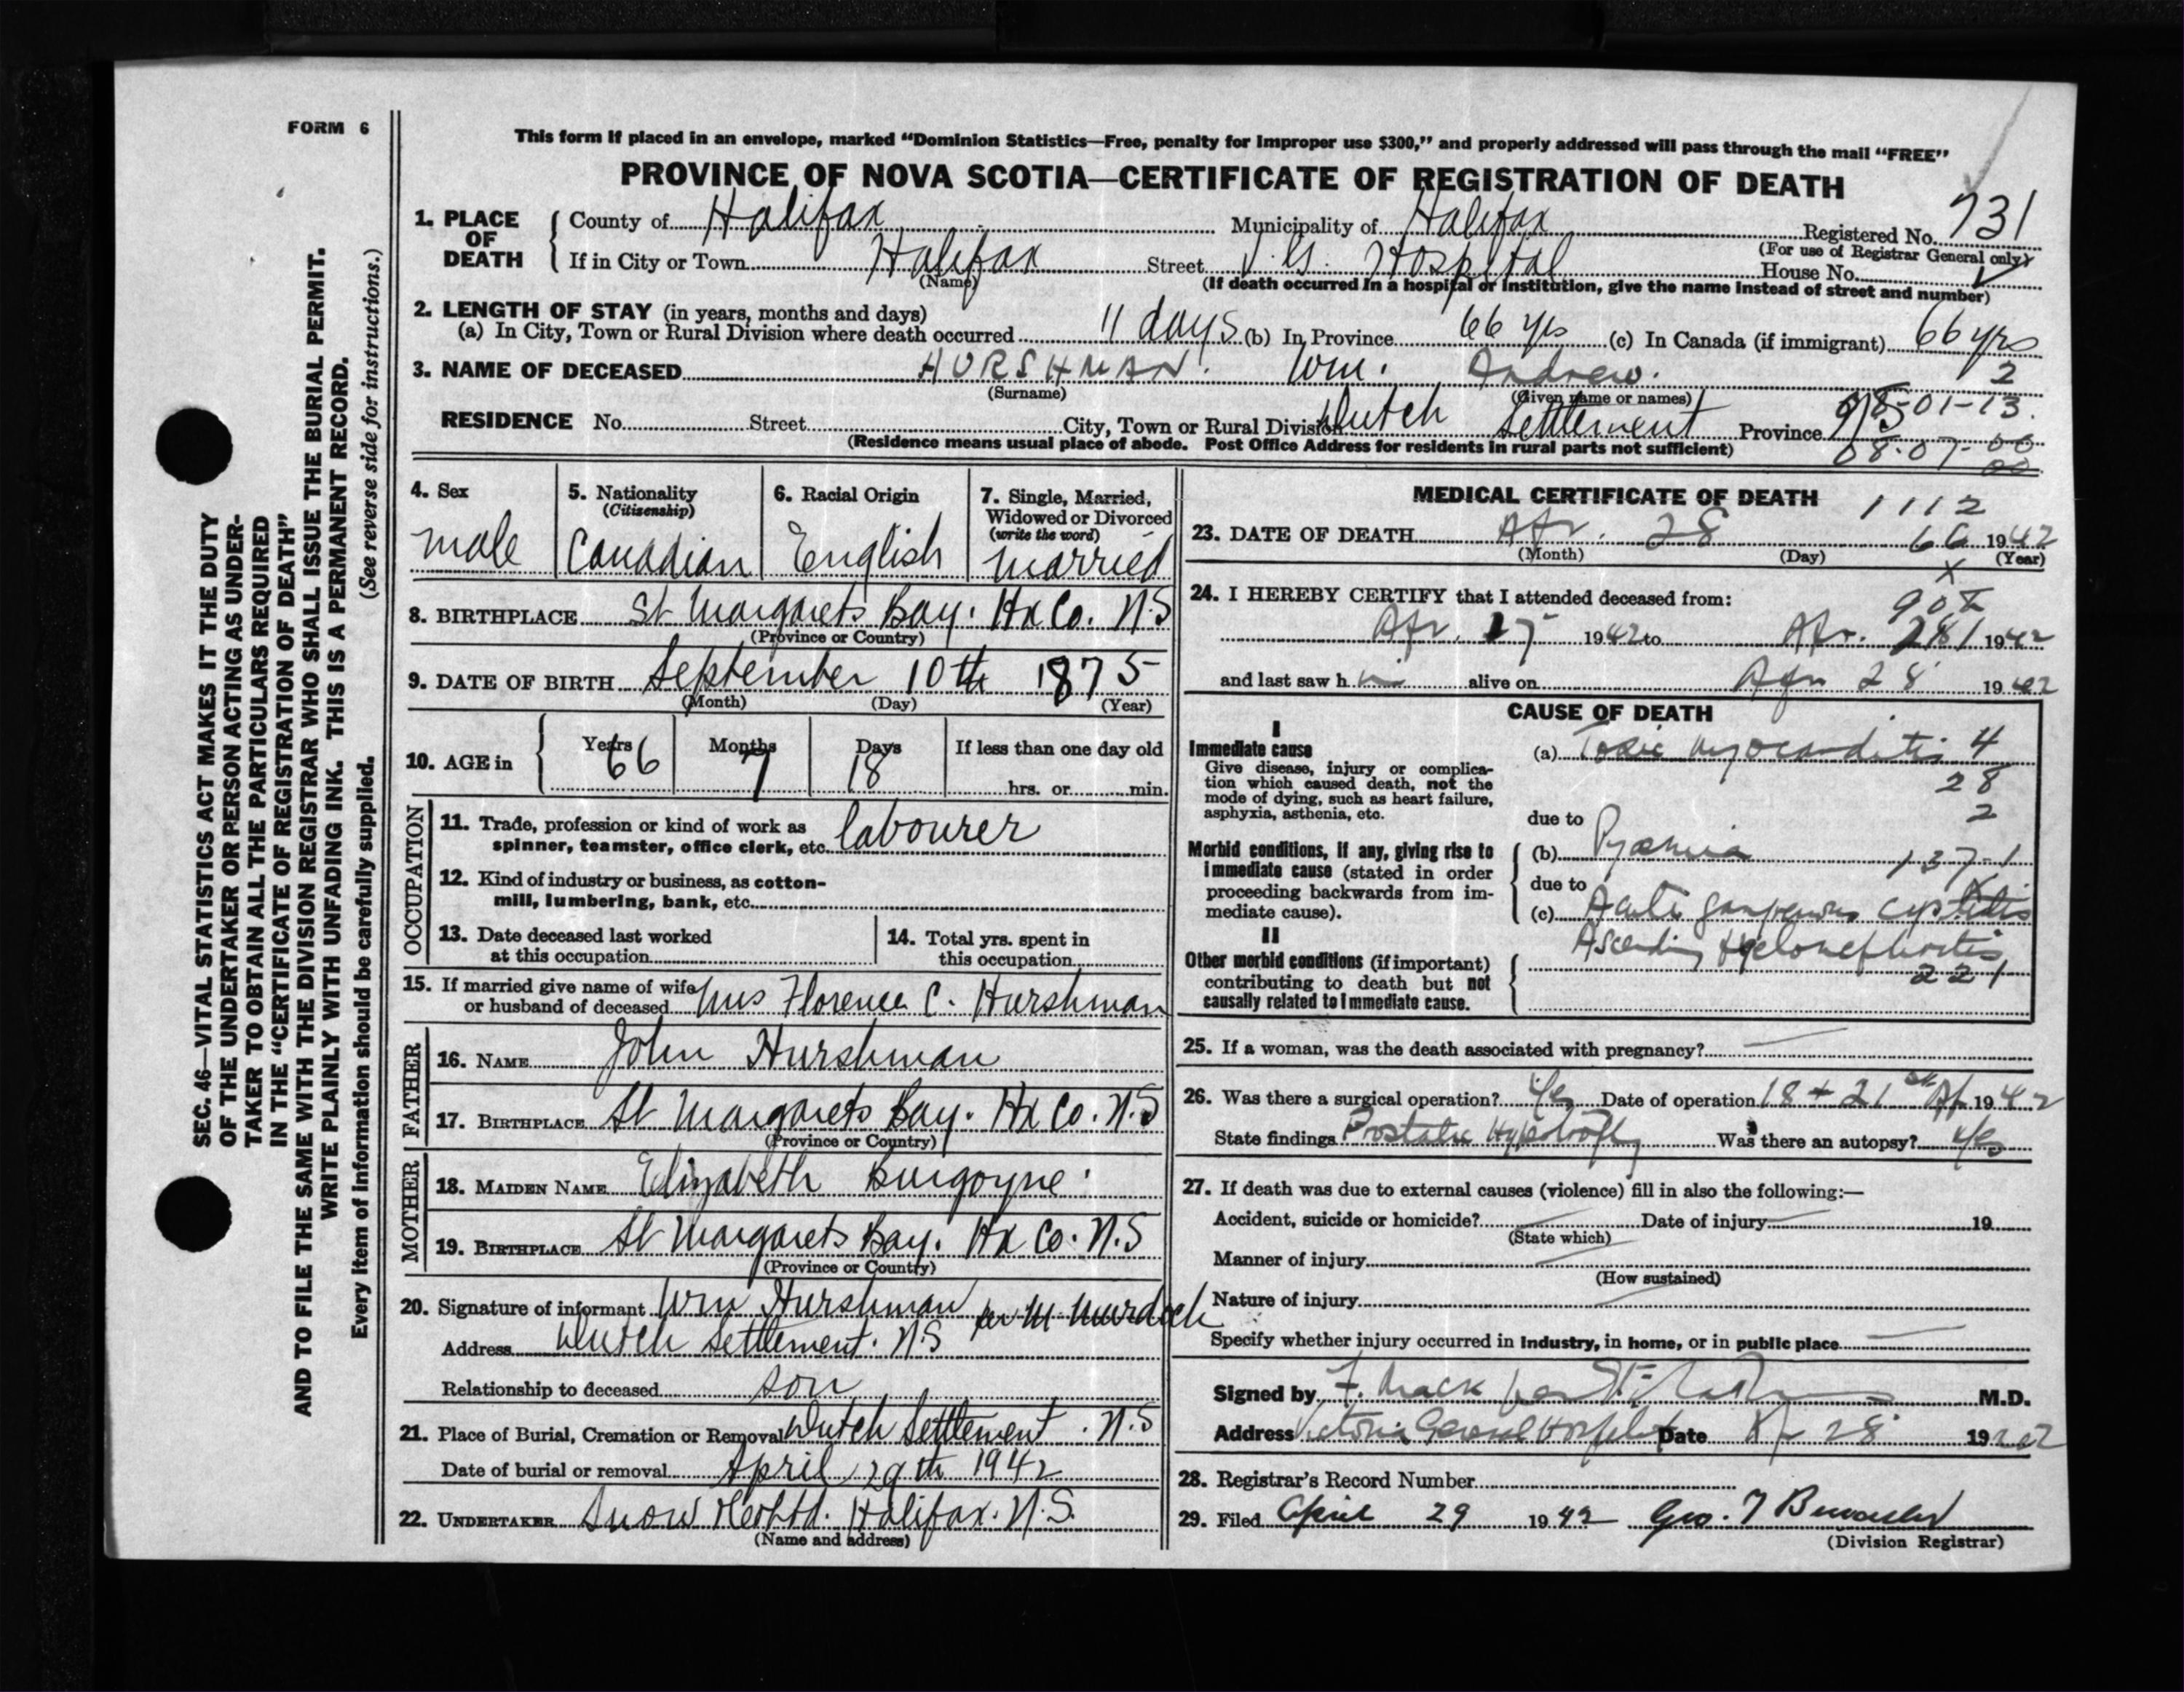 FORM 6
This form if placed in an envelope, marked “Dominion Statistics—Free, penalty for improper use $300,” and properly addressed will pass through the mail “FREE”
PROVINCE OF NOVA SCOTIA—CERTIFICATE OF REGISTRATION OF DEATH
1. PLACE OF DEATH County of Halifax Municipality of Halifax Registered No. 731
(For use of Registrar General only)
If in City or Town Halifax Street V. G. Hospital House No.
(Name) (If death occurred in a hospital or institution, give the name instead of street and number)
2. LENGTH OF STAY (in years, months and days)
(a) In City, Town or Rural Division where death occurred 11 days (b) In Province 66 yrs (c) In Canada (if immigrant) 66 yrs
3. NAME OF DECEASED HURSHMAN. Wm. Andrew. 2
(Surname) (Given name or names)
RESIDENCE No. Street City, Town or Rural Division Dutch Settlement Province NS 08-01-13.
(Residence means usual place of abode. Post Office Address for residents in rural parts not sufficient) 08-07-00
00
4. Sex male
5. Nationality (Citizenship) Canadian
6. Racial Origin English
7. Single, Married, Widowed or Divorced (write the word) married
8. BIRTHPLACE St Margarets Bay. Hx Co. N.S
(Province or Country)
9. DATE OF BIRTH September 10th 1875
(Month) (Day) (Year)
10. AGE in Years 66 Months 7 Days 18 If less than one day old
hrs. or min.
OCCUPATION
11. Trade, profession or kind of work as spinner, teamster, office clerk, etc. labourer
12. Kind of industry or business, as cotton-mill, lumbering, bank, etc.
13. Date deceased last worked at this occupation
14. Total yrs. spent in this occupation
15. If married give name of wife or husband of deceased Mrs Florence C. Hurshman
FATHER
16. NAME John Hurshman
17. BIRTHPLACE St Margarets Bay. Hx Co. N.S
(Province or Country)
MOTHER
18. MAIDEN NAME Elizabeth Burgoyne
19. BIRTHPLACE St Margarets Bay. Hx Co. N.S
(Province or Country)
20. Signature of informant Wm Hurshman per M Murdoch
Address Dutch Settlement. N.S
Relationship to deceased son
21. Place of Burial, Cremation or Removal Dutch Settlement. N.S
Date of burial or removal April 29th 1942
22. UNDERTAKER Snow & Co Ltd. Halifax. N.S.
(Name and address)
MEDICAL CERTIFICATE OF DEATH 1112
23. DATE OF DEATH Apr. 28 66 1942
(Month) (Day) (Year)
x
24. I HEREBY CERTIFY that I attended deceased from:
Apr. 17 1942 to Apr. 28 1942
and last saw him alive on Apr 28 1942
CAUSE OF DEATH
I
Immediate cause
Give disease, injury or complication which caused death, not the mode of dying, such as heart failure, asphyxia, asthenia, etc.
(a) Toxic myocarditis 4
28
2
due to
Morbid conditions, if any, giving rise to immediate cause (stated in order proceeding backwards from immediate cause).
(b) Pyaemia 137-1
due to
(c) Acute gangrenous cystitis
Ascending Pyelonephritis
221
II
Other morbid conditions (if important) contributing to death but not causally related to immediate cause.
25. If a woman, was the death associated with pregnancy?
26. Was there a surgical operation? Yes Date of operation 18 + 21st Ap 1942
State findings Prostatic Hypertrophy Was there an autopsy? Yes
27. If death was due to external causes (violence) fill in also the following:—
Accident, suicide or homicide? Date of injury 19
(State which)
Manner of injury
(How sustained)
Nature of injury
Specify whether injury occurred in industry, in home, or in public place
Signed by F. Mack M.D.
Address Victoria General Hospital Date Ap 28 1942
28. Registrar's Record Number
29. Filed April 29 1942 Geo. T
(Division Registrar)
SEC. 46—VITAL STATISTICS ACT MAKES IT THE DUTY
OF THE UNDERTAKER OR PERSON ACTING AS UNDER-
TAKER TO OBTAIN ALL THE PARTICULARS REQUIRED
IN THE “CERTIFICATE OF REGISTRATION OF DEATH”
AND TO FILE THE SAME WITH THE DIVISION REGISTRAR WHO SHALL ISSUE THE BURIAL PERMIT.
WRITE PLAINLY WITH UNFADING INK. THIS IS A PERMANENT RECORD.
Every item of information should be carefully supplied. (See reverse side for instructions.)